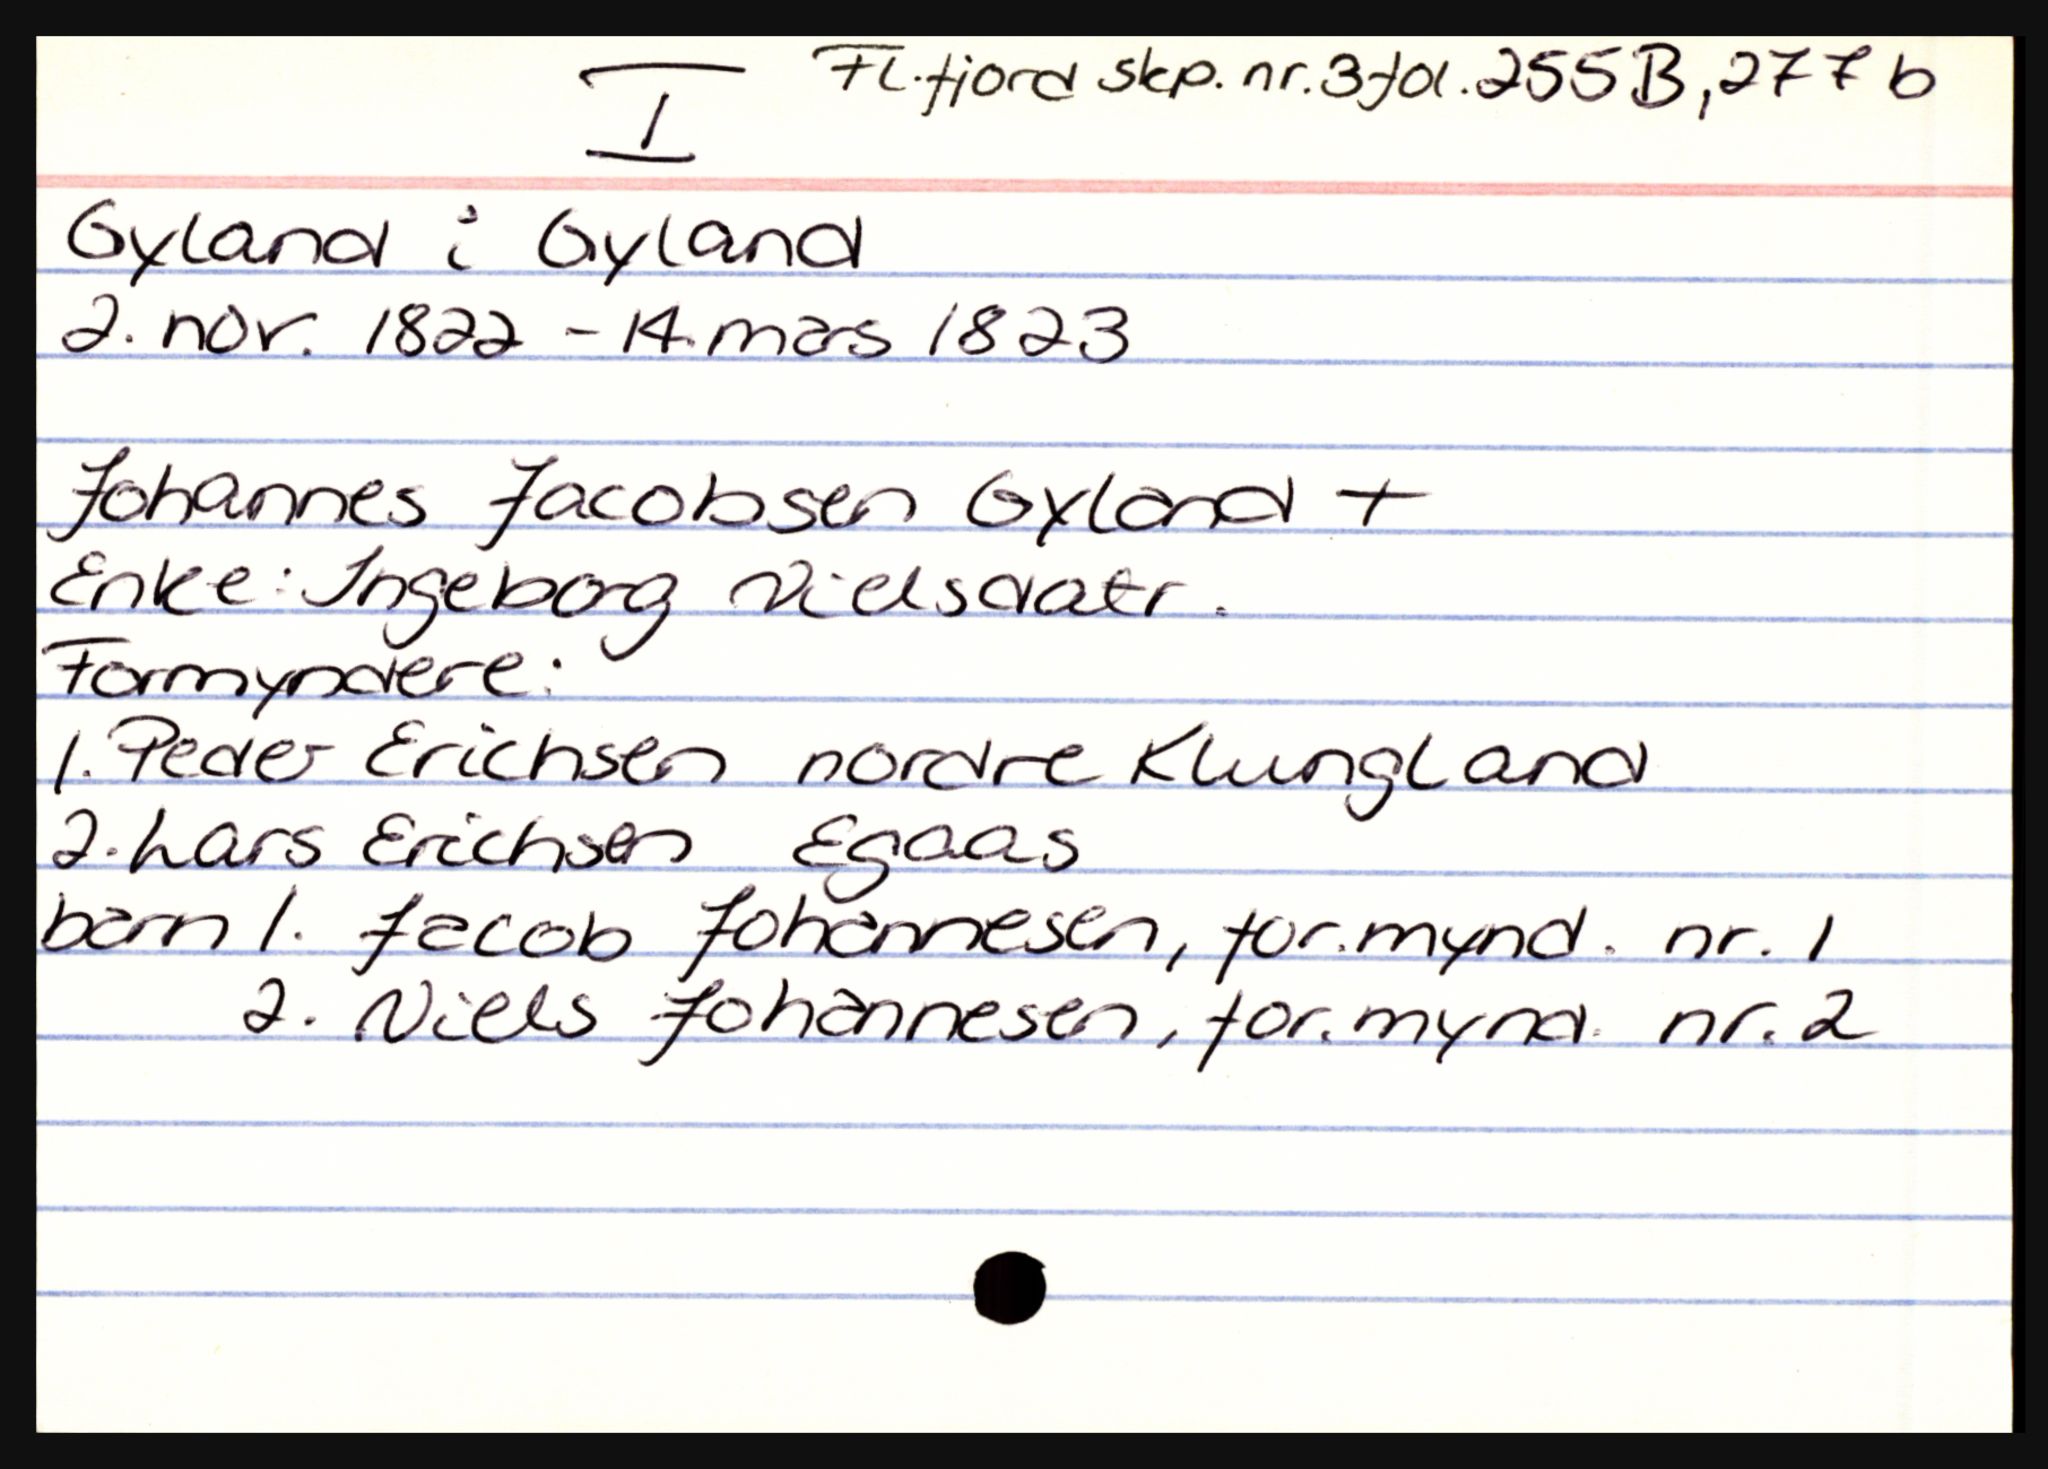 I Fl.fjord skp. nr. 3 fol. 255B, 277 b
Gyland i Gyland
2. nov. 1822 - 14. mars 1823
Johannes Jacobsen Gyland +
Enke: Ingeborg Nielsdatr.
Formyndere:
1. Peder Erichsen nordre Klungland
2. Lars Erichsen Egaas
barn 1. Jacob Johannesen, for.mynd. nr. 1
2. Niels Johannesen, for.mynd. nr. 2